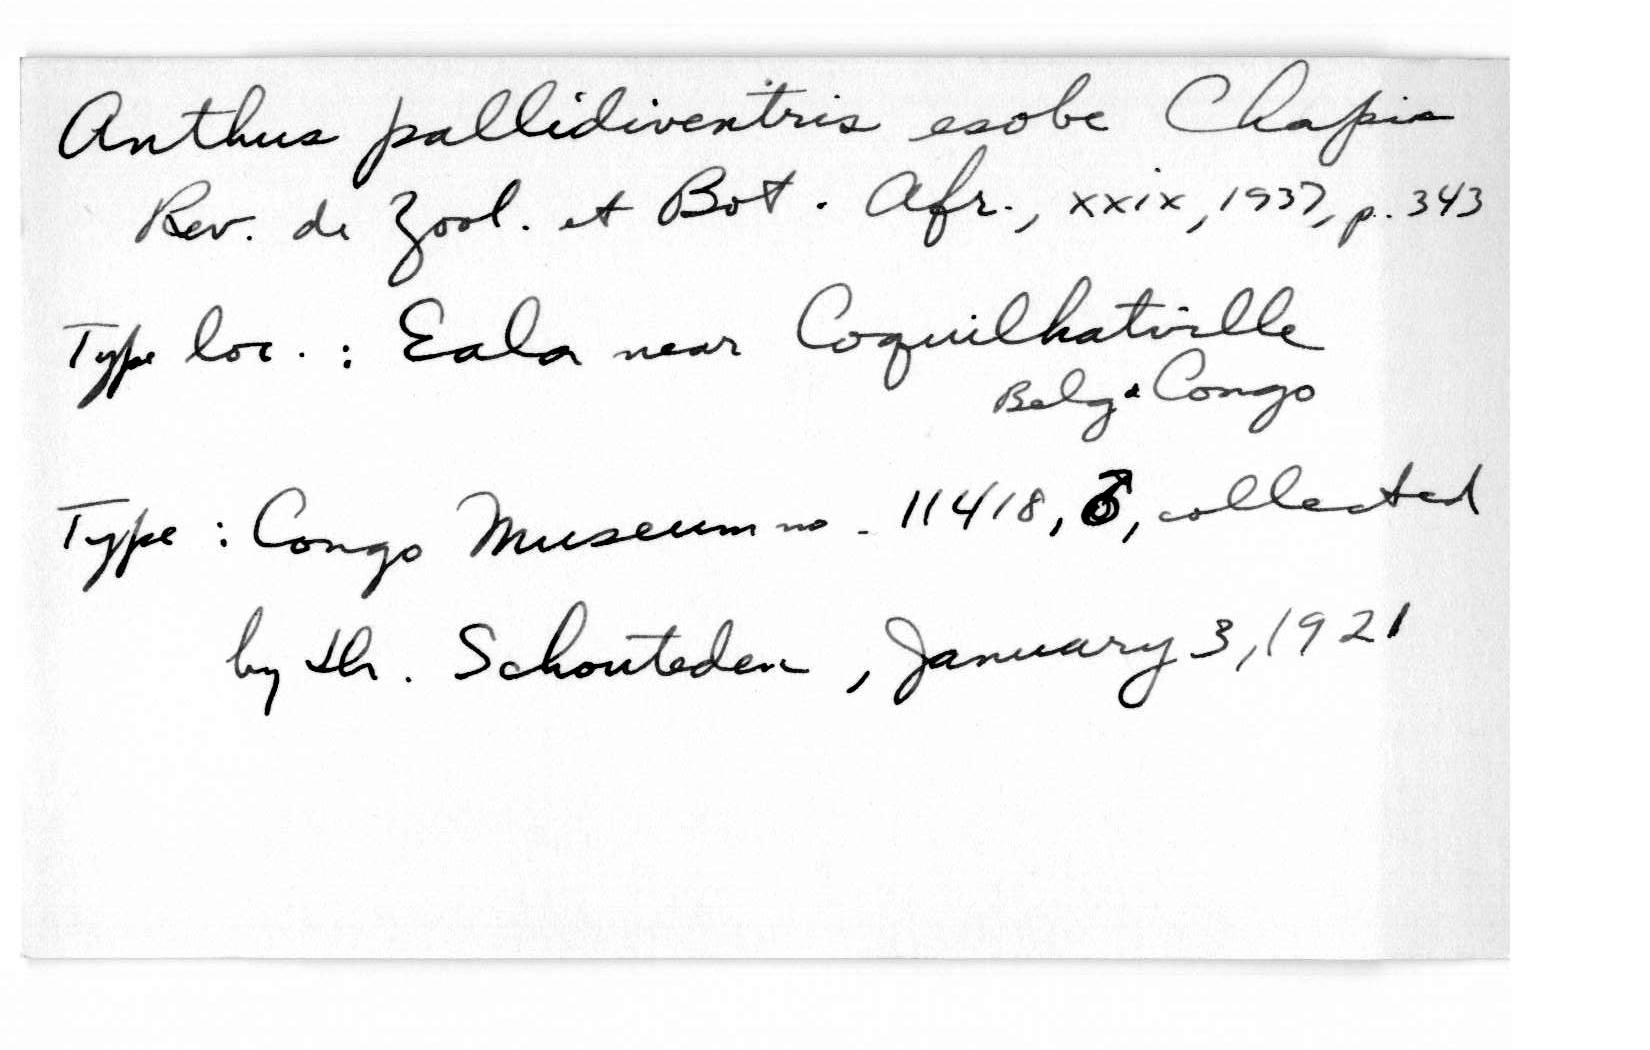 Anthus pallidiventris esobe Chapin
Rev. de Zool. et Bot. Afr., xxix, 1937, p. 343
Type loc. : Eala near Coquilhatville
Belg. Congo
Type : Congo Museum no. 11418, ♂, collected
by Dr. Schouteden, January 3, 1921